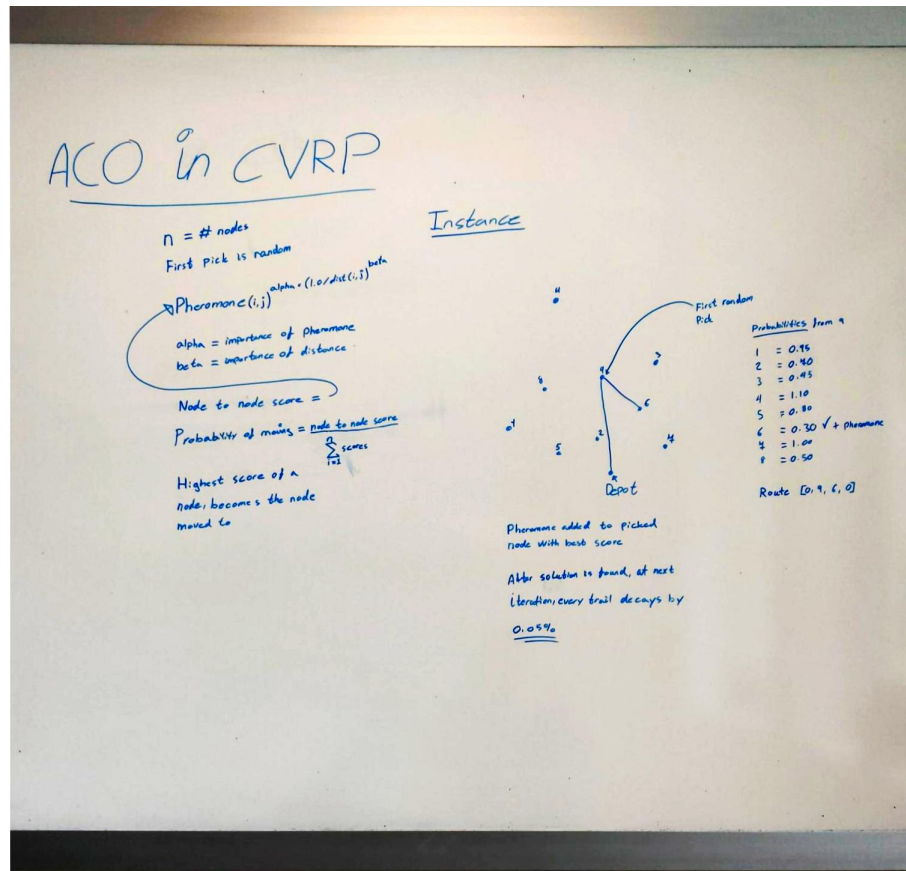 ACO in CVRP
n = # nodes
First Pick is random
Pheromone(i,j)^alpha * (1.0/dist(i,j))^beta
alpha = importance of pheromone
beta = importance of distance
Node to node score =
Probability of moving = node to node score
n
Σ scores
i=1
Highest score of a
node, becomes the node
moved to
Instance
First random
Pick
3
6
8
2
5
Depot
Pheromone added to picked
node with best score
After solution is found, at next
iteration, every trail decays by
0.05%
Probabilities from 9
1 = 0.95
2 = 0.40
3 = 0.45
4 = 1.10
5 = 0.80
6 = 0.30 ✓ + pheromone
7 = 1.00
8 = 0.50
Route [0, 9, 6, 0]